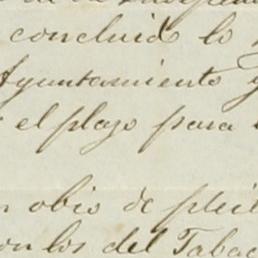 concluido lo
Ayuntamiento y
el plazo para
obio de pleit
con los del Tabac